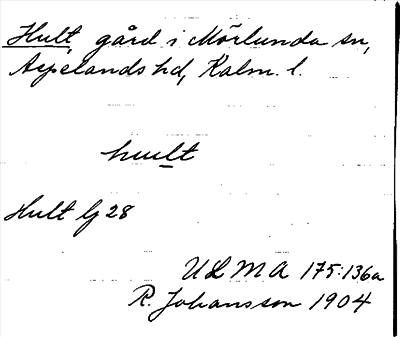 Hult, gård i Mörlunda sn,
Aspelands hd, Kalm. l.
hult
Hult G 28
ULMA 175:136a
R. Johansson 1904